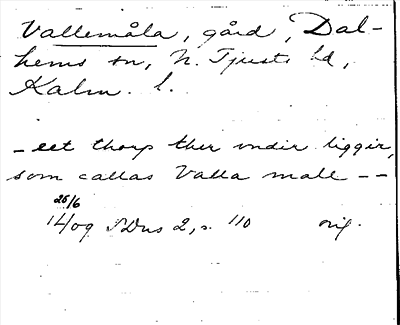 Vallemåla, gård, Dal-
hems sn, N. Tjusts hd,
Kalm. l.
- eet thorp ther vndir liggir,
som callas Valla male - -
26/6
14/09 SDns 2, s. 110 orig.